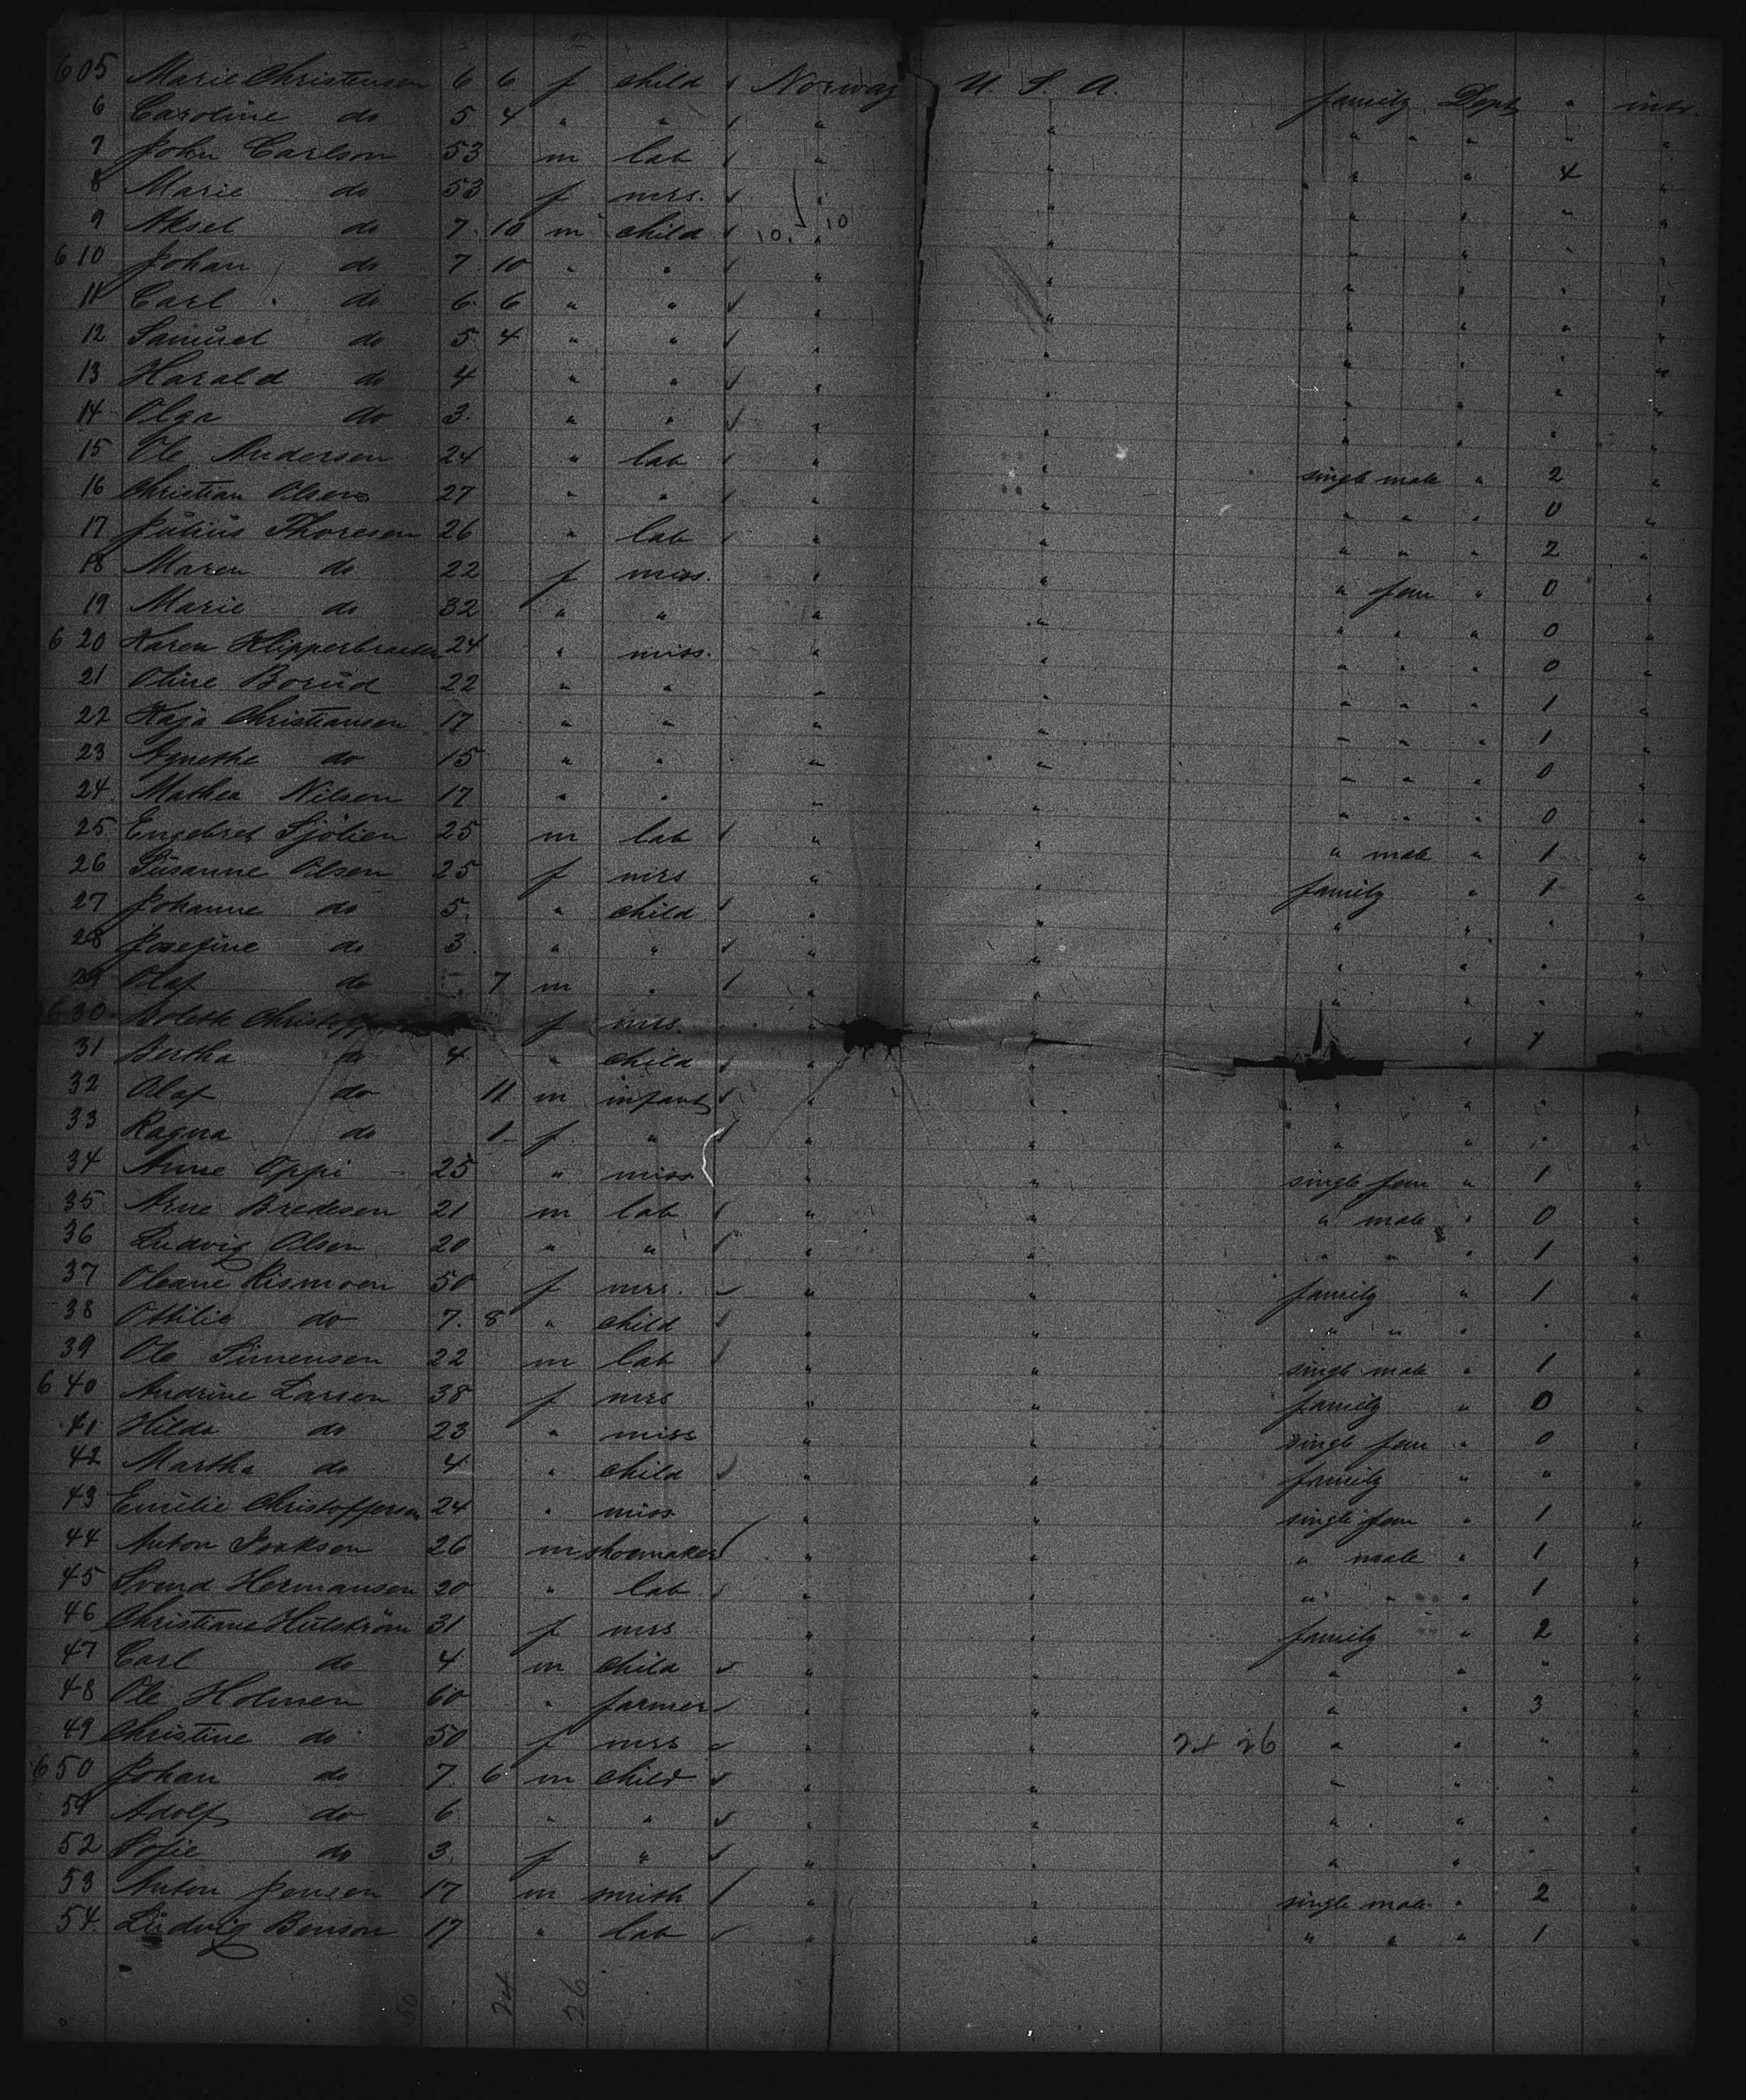 605 Marie Christensen 6 6 f child ✓ Norway U. S. A. family Dept " intr.
6 Caroline do 5 4 " " ✓ " " " " " " "
7 John Carlson 53 m lab ✓ " " " " 4 "
8 Marie do 53 f mrs. ✓ " " " " " "
9 Aksel do 7 10 m child ✓ 10. " 10 " " " " "
610 Johan do 7 10 " " ✓ " " " " " "
11 Carl do 6 6 " " ✓ " " " " " "
12 Samuel do 5 4 " " ✓ " " " " " "
13 Harald do 4 " " ✓ " " " " " "
14 Olga do 3. " " ✓ " " " " " "
15 Ole Andersen 24 " lab ✓ " " single male " 2 "
16 Christian Olsen 27 " " ✓ " " " " " 0 "
17 Julius Thoresen 26 " lab ✓ " " " " " 2 "
18 Maren do 22 f miss. " " " fem " 0 "
19 Marie do 32 " " " " " " " 0 "
620 Karen 24 " miss. " " " " " 0 "
21 Oline Borud 22 " " " " " " " 1 "
22 Kaja Christiansen 17 " " " " " " " 1 "
23 Agnethe do 15 " " " " " " " 0 "
24 Mathea Nilsen 17 " " " " " " " 0 "
25 Engebret Sjölien 25 m lab ✓ " " " male " 1 "
26 Susanne Olsen 25 f mrs " " family " 1 "
27 Johanne do 5. " child ✓ " " " " " "
28 Josefine do 3. " " ✓ " " " " " "
29 Olaf do 7 m " ✓ " " " " " "
630 f mrs. " " " 1 "
31 Bertha do 4 " child ✓ " "
32 Olaf do 11 m infant ✓ " " " " " "
33 Ragna do 1 f " ✓ " " " " " "
34 Anne Oppi 25 " miss " " single fem " 1 "
35 Arne Bredesen 21 m lab ✓ " " " male " 0 "
36 Ludvig Olsen 20 " " ✓ " " " " " 1 "
37 Oleane Rismoen 50 f mrs. ✓ " " family " 1 "
38 Ottilie do 7. 8 " child ✓ " " " " " " "
39 Ole Simensen 22 m lab ✓ " " single male " 1 "
640 Andrine Larsen 38 f mrs " " family " 0 "
41 Hilda do 23 " miss " " single fem " 0 "
42 Martha do 4 " child ✓ " " family " " "
43 Emilie Christoffersen 24 " miss " " single fem " 1 "
44 Anton Isaksen 26 m shoemaker ✓ " " " male " 1 "
45 Svend Hermansen 20 " lab ✓ " " " " " 1 "
46 Christiane Hulström 31 f mrs " " family " 2 "
47 Carl do 4 m child ✓ " " " " " "
48 Ole Holmen 60 " farmer ✓ " " " " 3 "
49 Christine do 50 f mrs ✓ " " 24 26 " " " "
650 Johan do 7. 6 m child ✓ " " " " " "
51 Adolf do 6 " " ✓ " " " " " "
52 Sofie do 3. f " ✓ " " " " " "
53 Anton Jensen 17 m smith ✓ " " single male " 2 "
54. Ludvig Benson 17 " lab ✓ " " " " " 1 "
50 24 26